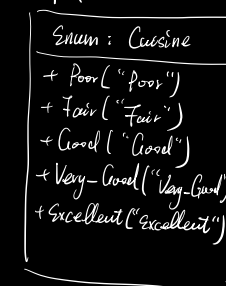 Enum : Cuisine
+ Poor("Poor")
+ Fair("Fair")
+ Good("Good")
+ Very-Good("Very-Good")
+ Excellent("Excellent")